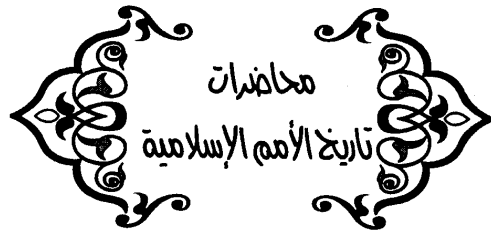 محاضرات
تاريخ الأمم الإسلامية